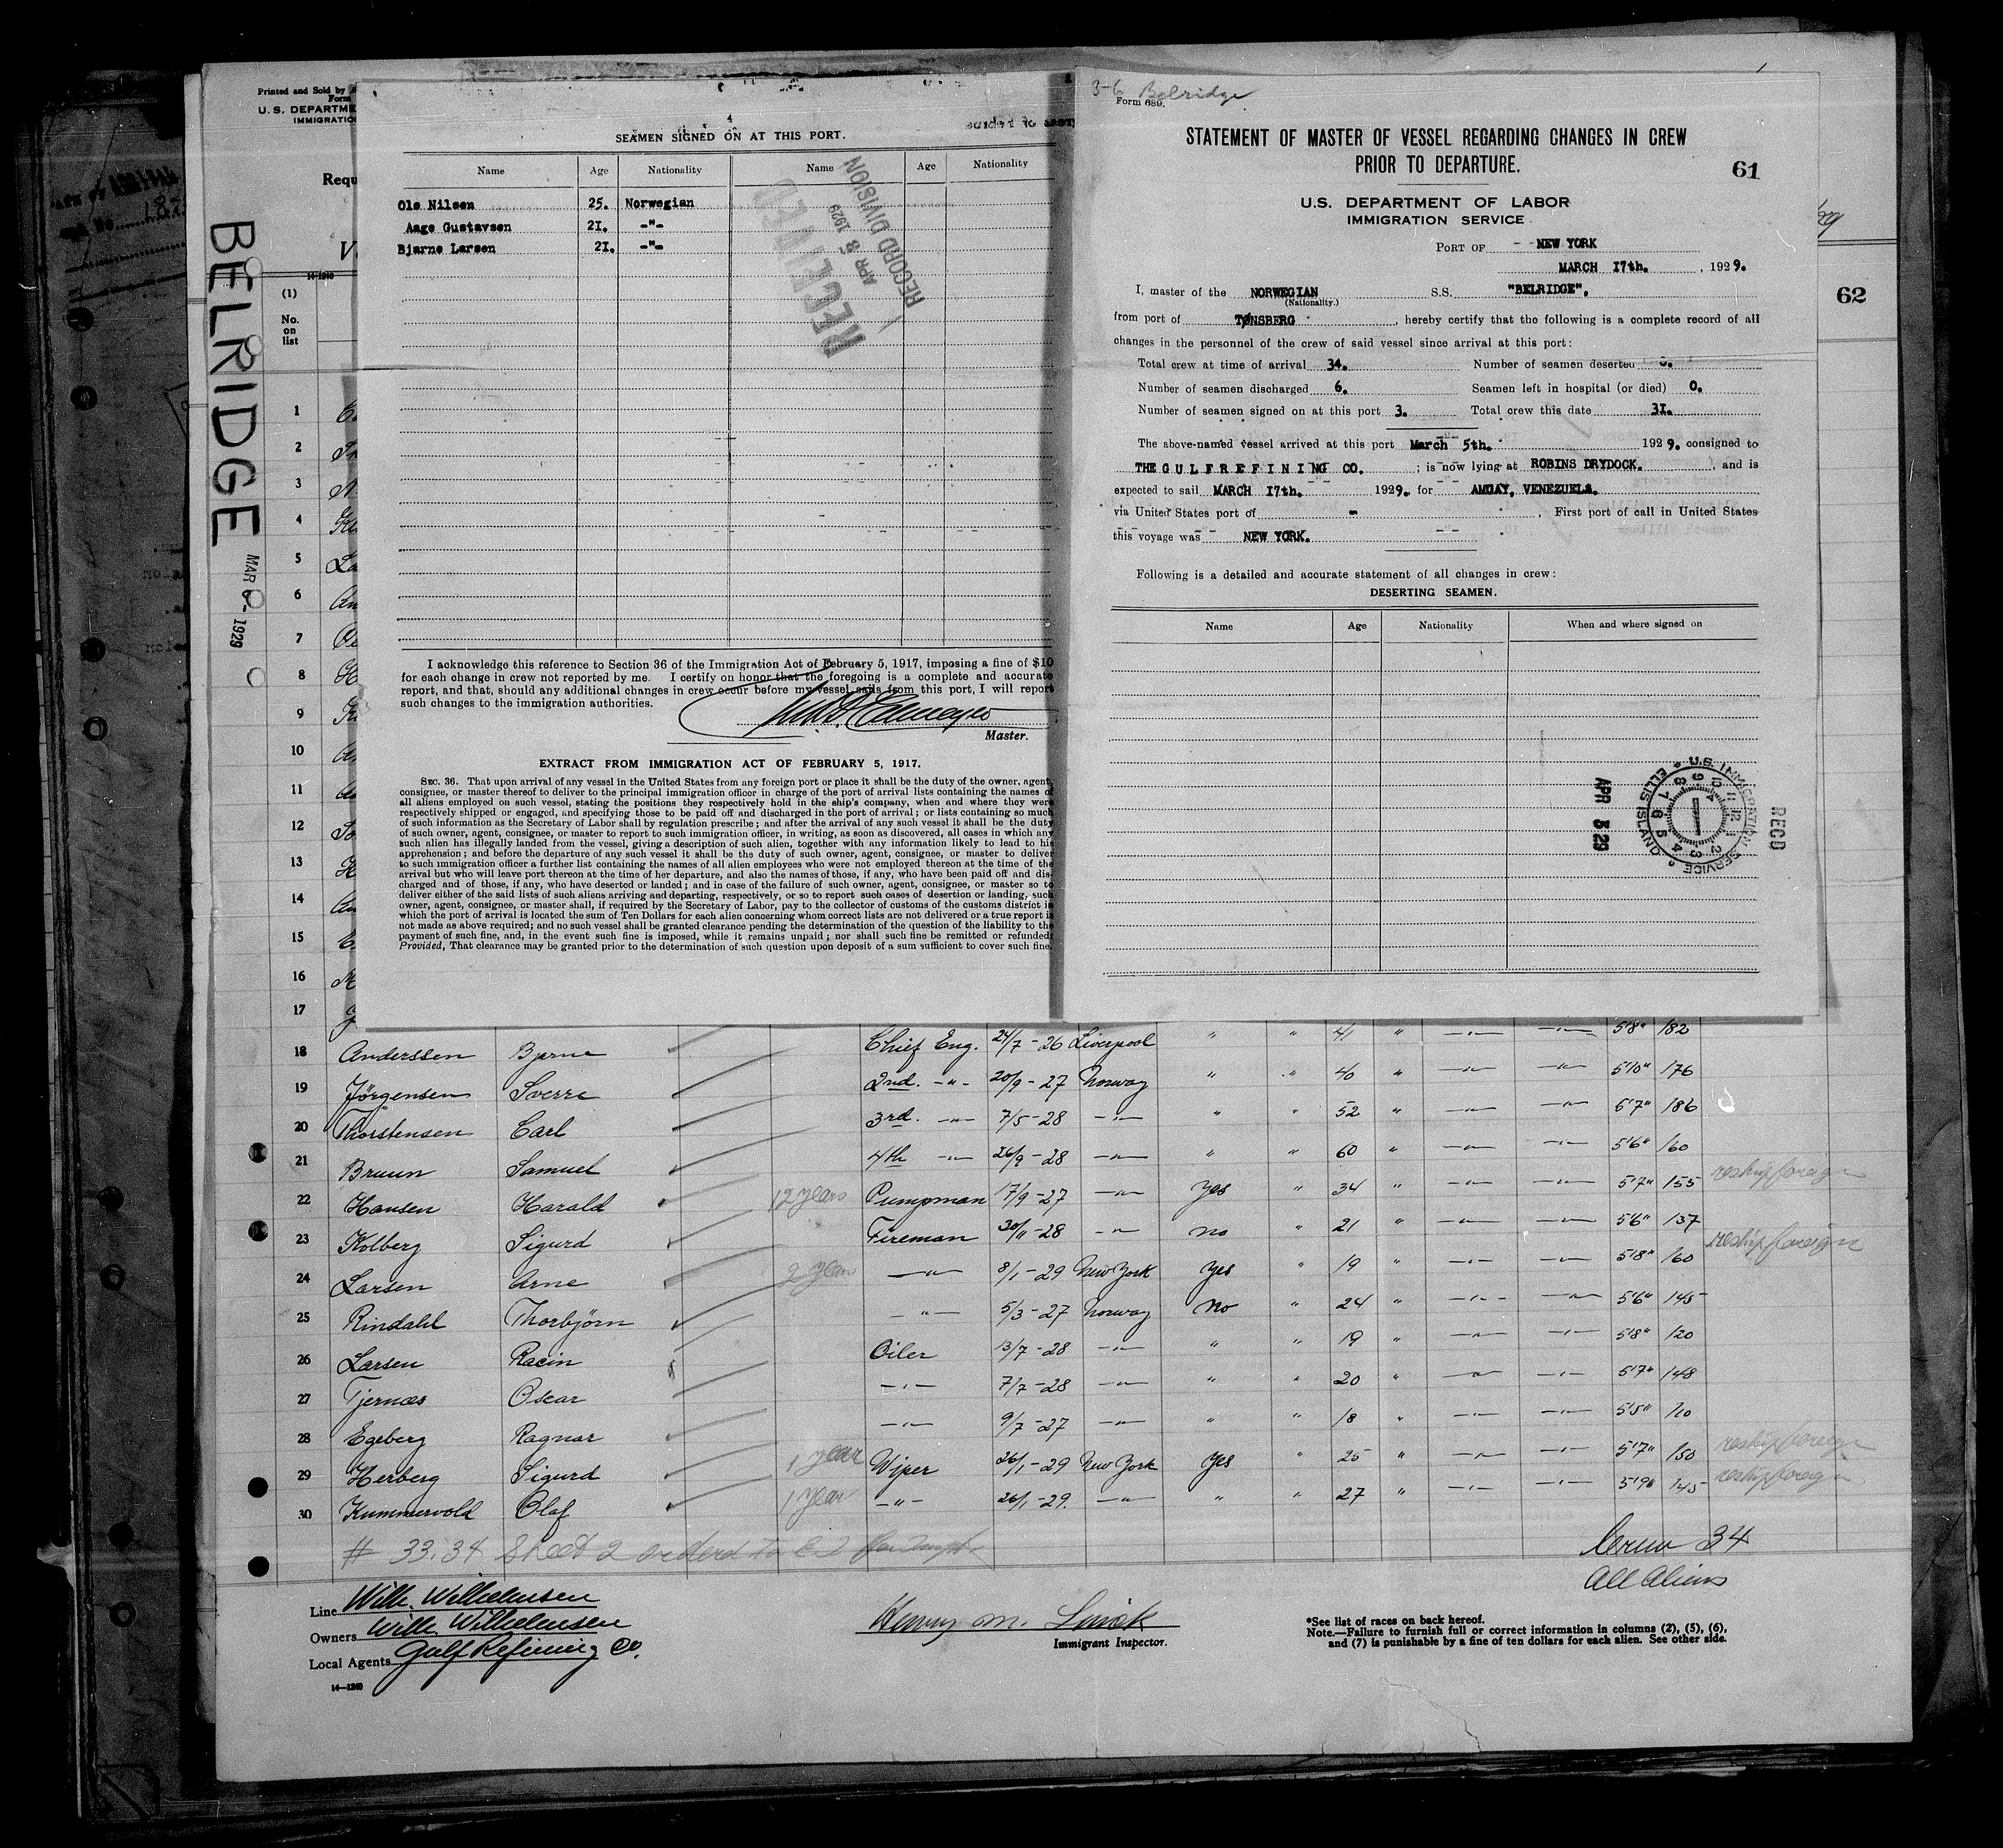 Printed and Sold by
Form
U. S. DEPARTME
IMMIGRATIO
Requ
BELRIDGE
MAR 6 - 1929
14-1240
(1)
No.
on
list
4
SEAMEN SIGNED ON AT THIS PORT.
Name Age Nationality Name Age Nationality
Ole Nilsen 25. Norwegian
Aage Gustavsen 21. -"-
Bjarne Larsen 21. -"-
RECEIVED
APR 8 1929
RECORD DIVISION
I acknowledge this reference to Section 36 of the Immigration Act of February 5, 1917, imposing a fine of $10
for each change in crew not reported by me. I certify on honor that the foregoing is a complete and accurate
report, and that, should any additional changes in crew occur before my vessel sails from this port, I will report
such changes to the immigration authorities.
Master.
EXTRACT FROM IMMIGRATION ACT OF FEBRUARY 5, 1917.
SEC. 36. That upon arrival of any vessel in the United States from any foreign port or place it shall be the duty of the owner, agent,
consignee, or master thereof to deliver to the principal immigration officer in charge of the port of arrival lists containing the names of
all aliens employed on such vessel, stating the positions they respectively hold in the ship's company, when and where they were
respectively shipped or engaged, and specifying those to be paid off and discharged in the port of arrival; or lists containing so much
of such information as the Secretary of Labor shall by regulation prescribe; and after the arrival of any such vessel it shall be the duty
of such owner, agent, consignee, or master to report to such immigration officer, in writing, as soon as discovered, all cases in which any
such alien has illegally landed from the vessel, giving a description of such alien, together with any information likely to lead to his
apprehension; and before the departure of any such vessel it shall be the duty of such owner, agent, consignee, or master to deliver
to such immigration officer a further list containing the names of all alien employees who were not employed thereon at the time of the
arrival but who will leave port thereon at the time of her departure, and also the names of those, if any, who have been paid off and dis-
charged and of those, if any, who have deserted or landed; and in case of the failure of such owner, agent, consignee, or master so to
deliver either of the said lists of such aliens arriving and departing, respectively, or so to report such cases of desertion or landing, such
owner, agent, consignee, or master shall, if required by the Secretary of Labor, pay to the collector of customs of the customs district in
which the port of arrival is located the sum of Ten Dollars for each alien concerning whom correct lists are not delivered or a true report is
not made as above required; and no such vessel shall be granted clearance pending the determination of the question of the liability to the
payment of such fine, and, in the event such fine is imposed, while it remains unpaid; nor shall such fine be remitted or refunded:
Provided, That clearance may be granted prior to the determination of such question upon deposit of a sum sufficient to cover such fine.
3-6 Belridge
Form 689.
STATEMENT OF MASTER OF VESSEL REGARDING CHANGES IN CREW
PRIOR TO DEPARTURE.
61
62
U.S. DEPARTMENT OF LABOR
IMMIGRATION SERVICE
PORT OF NEW YORK
MARCH 17th. , 1929.
I, master of the NORWEGIAN S.S. "BELRIDGE".
(Nationality.)
from port of TØNSBERG , hereby certify that the following is a complete record of all
changes in the personnel of the crew of said vessel since arrival at this port:
Total crew at time of arrival 34. Number of seamen deserted 0.
Number of seamen discharged 6. Seamen left in hospital (or died) 0.
Number of seamen signed on at this port 3. Total crew this date 31.
The above-named vessel arrived at this port March 5th. 1929. consigned to
THE GULF REFINING CO. ; is now lying at ROBINS DRYDOCK. , and is
expected to sail MARCH 17th. 1929. for AMUAY, VENEZUELA.
via United States port of - . First port of call in United States
this voyage was NEW YORK.
Following is a detailed and accurate statement of all changes in crew:
DESERTING SEAMEN.
Name Age Nationality When and where signed on
REC'D
U.S. IMMIGRATION SERVICE ELLIS ISLAND
APR 3 29
1
2
3
4
5
6
7
8
9
10
11
12
13
14
15
16
17
" " 41 " -"- -"- 5'8" 182
18 Anderssen Bjarne Chief Eng. 24/7-26 Liverpool
" " 40 " -"- -"- 5'10" 176
19 Jörgensen Sverre 2nd. -"- 20/9-27 Norway
" " 52 " -"- -"- 5'7" 186
20 Thorstensen Carl 3rd. -"- 7/5-28 -"-
" " 60 " -"- -"- 5'6" 160
21 Bruun Samuel 4th -"- 26/9-28 -"-
22 Hansen Harald 12 years Pumpman 17/9-27 -"- Yes " 34 " -"- -"- 5'7" 155 reship foreign
23 Kolberg Sigurd Fireman 30/11-28 -"- no " 21 " -"- -"- 5'6" 137
24 Larsen Arne 2 year -"- 8/1-29 New York Yes " 19 " -"- -"- 5'8" 160 reship foreign
25 Rindahl Thorbjörn -"- 5/3-27 Norway no " 24 " -"- -"- 5'6" 145
26 Larsen Racin Oiler 13/7-28 -"- " " 19 " -"- -"- 5'8" 120
27 Tjernæs Oscar -"- 7/7-28 -"- " " 20 " -"- -"- 5'7" 148
28 Egeberg Ragnar -"- 9/7-27 -"- " " 18 " -"- -"- 5'5" 110
29 Herberg Sigurd 1 year Wiper 26/1-29 New York Yes " 25 " -"- -"- 5'7" 150 reship foreign
30 Kummervold Olaf 1 year -"- 26/1-29. -"- " " 27 " -"- -"- 5'9" 145 reship foreign
# 33, 34 Sheet 2 ordered to
Crew 34
All Aliens
Line Wilh. Wilhelmsen
Owners Wilh. Wilhelmsen
Local Agents Gulf Refining Co.
14-1240
Henry M.
Immigrant Inspector.
*See list of races on back hereof.
Note.—Failure to furnish full or correct information in columns (2), (5), (6),
and (7) is punishable by a fine of ten dollars for each alien. See other side.